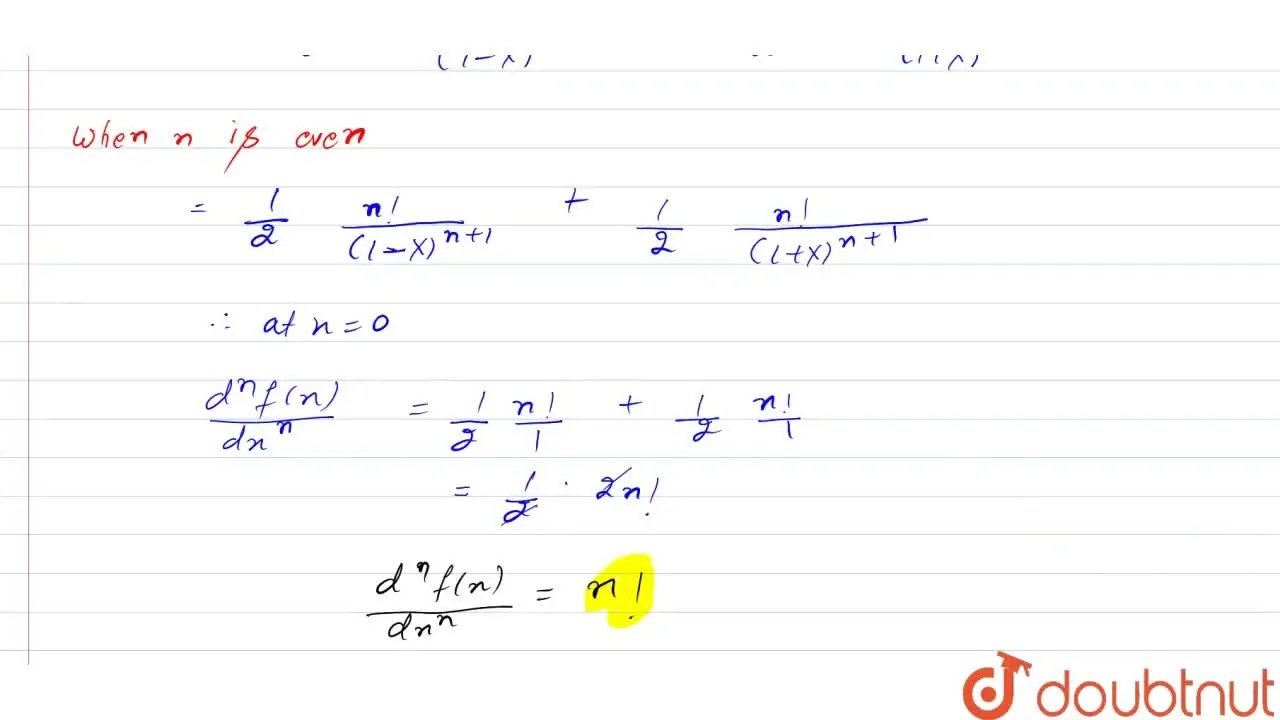 When n is even
= 1/2 n!/(1-x)^{n+1} + 1/2 n!/(1+x)^{n+1}
∴ at x = 0
d^n f(x)/dx^n = 1/2 n!/1 + 1/2 n!/1
= 1/2 · 2n!
d^n f(x)/dx^n = n!
doubtnut